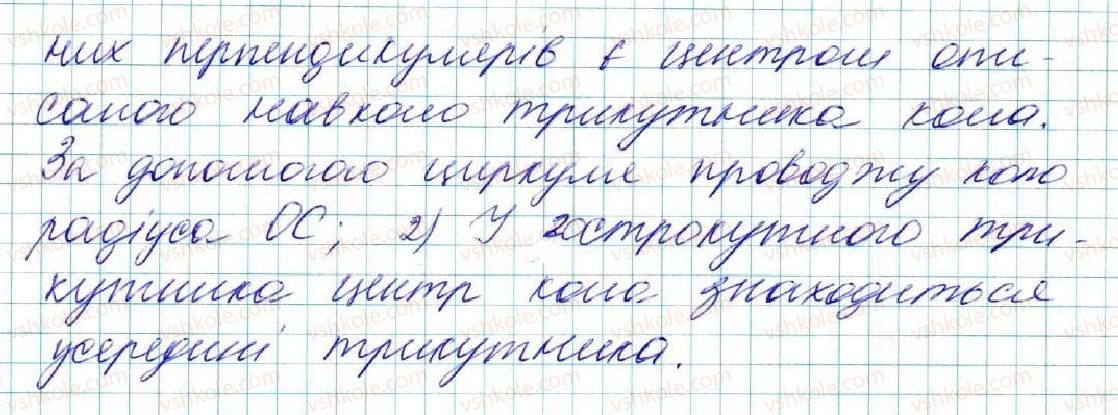 них перпендикулярів є центром опи-
саного навколо трикутника кола.
За допомогою циркуля проводжу коло
радіуса OC; 2) У гострокутного три-
кутника центр кола знаходиться
усередині трикутника.